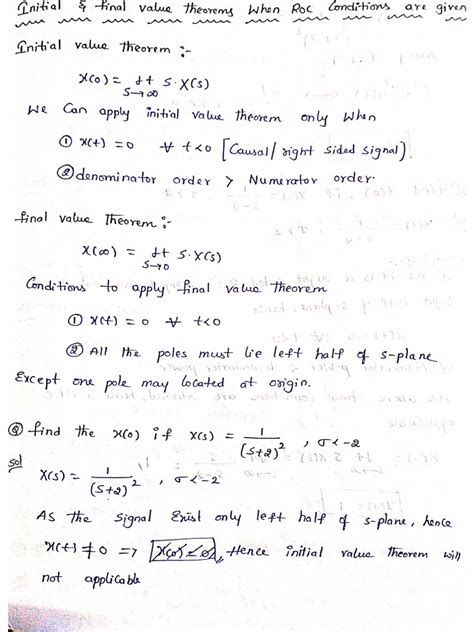 Initial & final value theorems when ROC Conditions are given
Initial value theorem :-
x(0) = lt S→∞ S·X(s)
We Can apply initial value theorem only when
① x(t) = 0 ∀ t<0 [Causal/ right sided signal].
② denominator order > Numerator order.
final value Theorem :-
x(∞) = lt S→0 S·X(s)
Conditions to apply final value theorem
① x(t) = 0 ∀ t<0
② All the poles must lie left half of s-plane
Except one pole may located at origin.
Ⓠ find the x(0) if X(s) = 1/(s+2)² , σ<-2
Sol
X(s) = 1/(s+2)² , σ<-2
As the signal Exist only left half of s-plane, hence
x(t) ≠ 0 => Hence initial value theorem will
not applicable